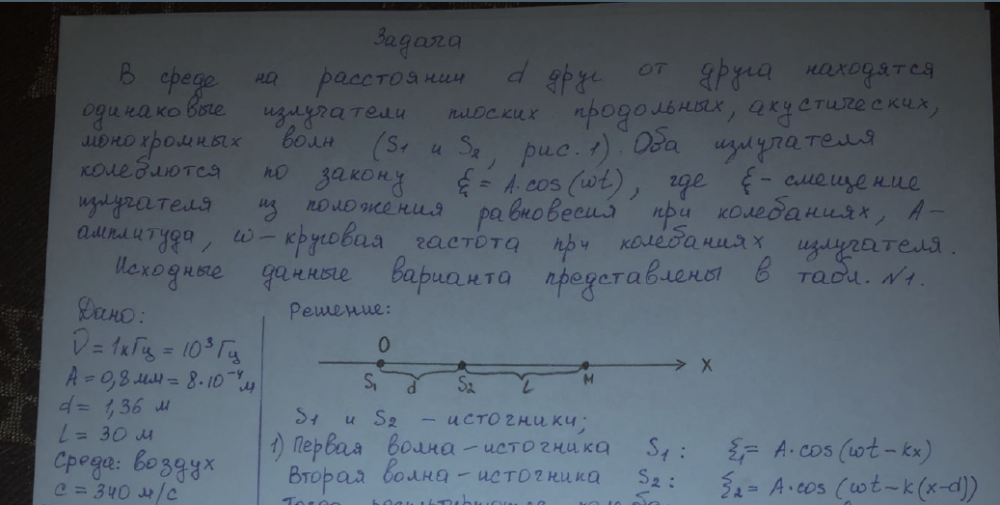 Задача
В среде на расстоянии d друг от друга находятся
одинаковые излучатели плоских продольных, акустических,
монохромных волн (S1 и S2, рис. 1). Оба излучателя
колеблются по закону ξ = A·cos(ωt), где ξ – смещение
излучателя из положения равновесия при колебаниях, A –
амплитуда, ω – круговая частота при колебаниях излучателя.
Исходные данные варианта представлены в табл. N1.
Дано:
ν = 1кГц = 10³ Гц
A = 0,8 мм = 8·10⁻⁴ м
d = 1,36 м
L = 30 м
Среда: воздух
c = 340 м/с
Решение:
O
S1 d S2 L M X
S1 и S2 – источники;
1) Первая волна – источника S1: ξ1 = A·cos(ωt – kx)
Вторая волна – источника S2: ξ2 = A·cos(ωt – k(x-d))